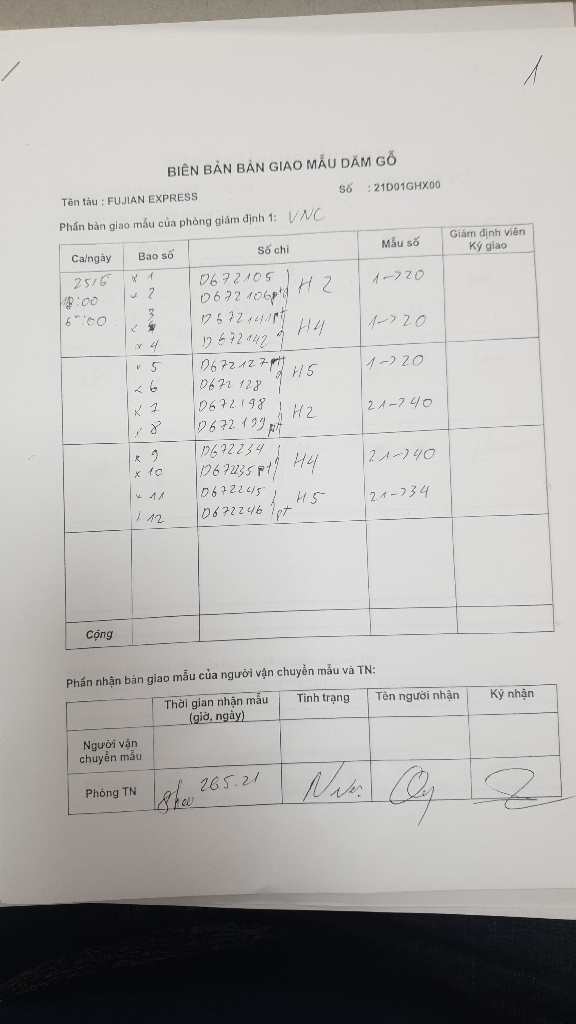 1
BIÊN BẢN BÀN GIAO MẪU DĂM GỖ
Tên tàu : FUJIAN EXPRESS Số : 21D01GHX00
Phần bàn giao mẫu của phòng giám định 1: VNC
Ca/ngày Bao số Số chì Mẫu số Giám định viên Ký giao
25/5 x 1 D672105 H2 1->20
18:00 x 2 D672106 pt
6:00 3 D672141 pt H4 1->20
x 4 D672142
x 5 D672127 pt H5 1->20
x 6 D672128
x 7 D672198 H2 21->40
x 8 D672199 pt
x 9 D672234 H4 21->40
x 10 D672235 pt
x 11 D672245 H5 21->34
12 D672246 pt
Cộng
Phần nhận bàn giao mẫu của người vận chuyển mẫu và TN:
Thời gian nhận mẫu (giờ, ngày) Tình trạng Tên người nhận Ký nhận
Người vận chuyển mẫu
Phòng TN 8h00 26.5.21